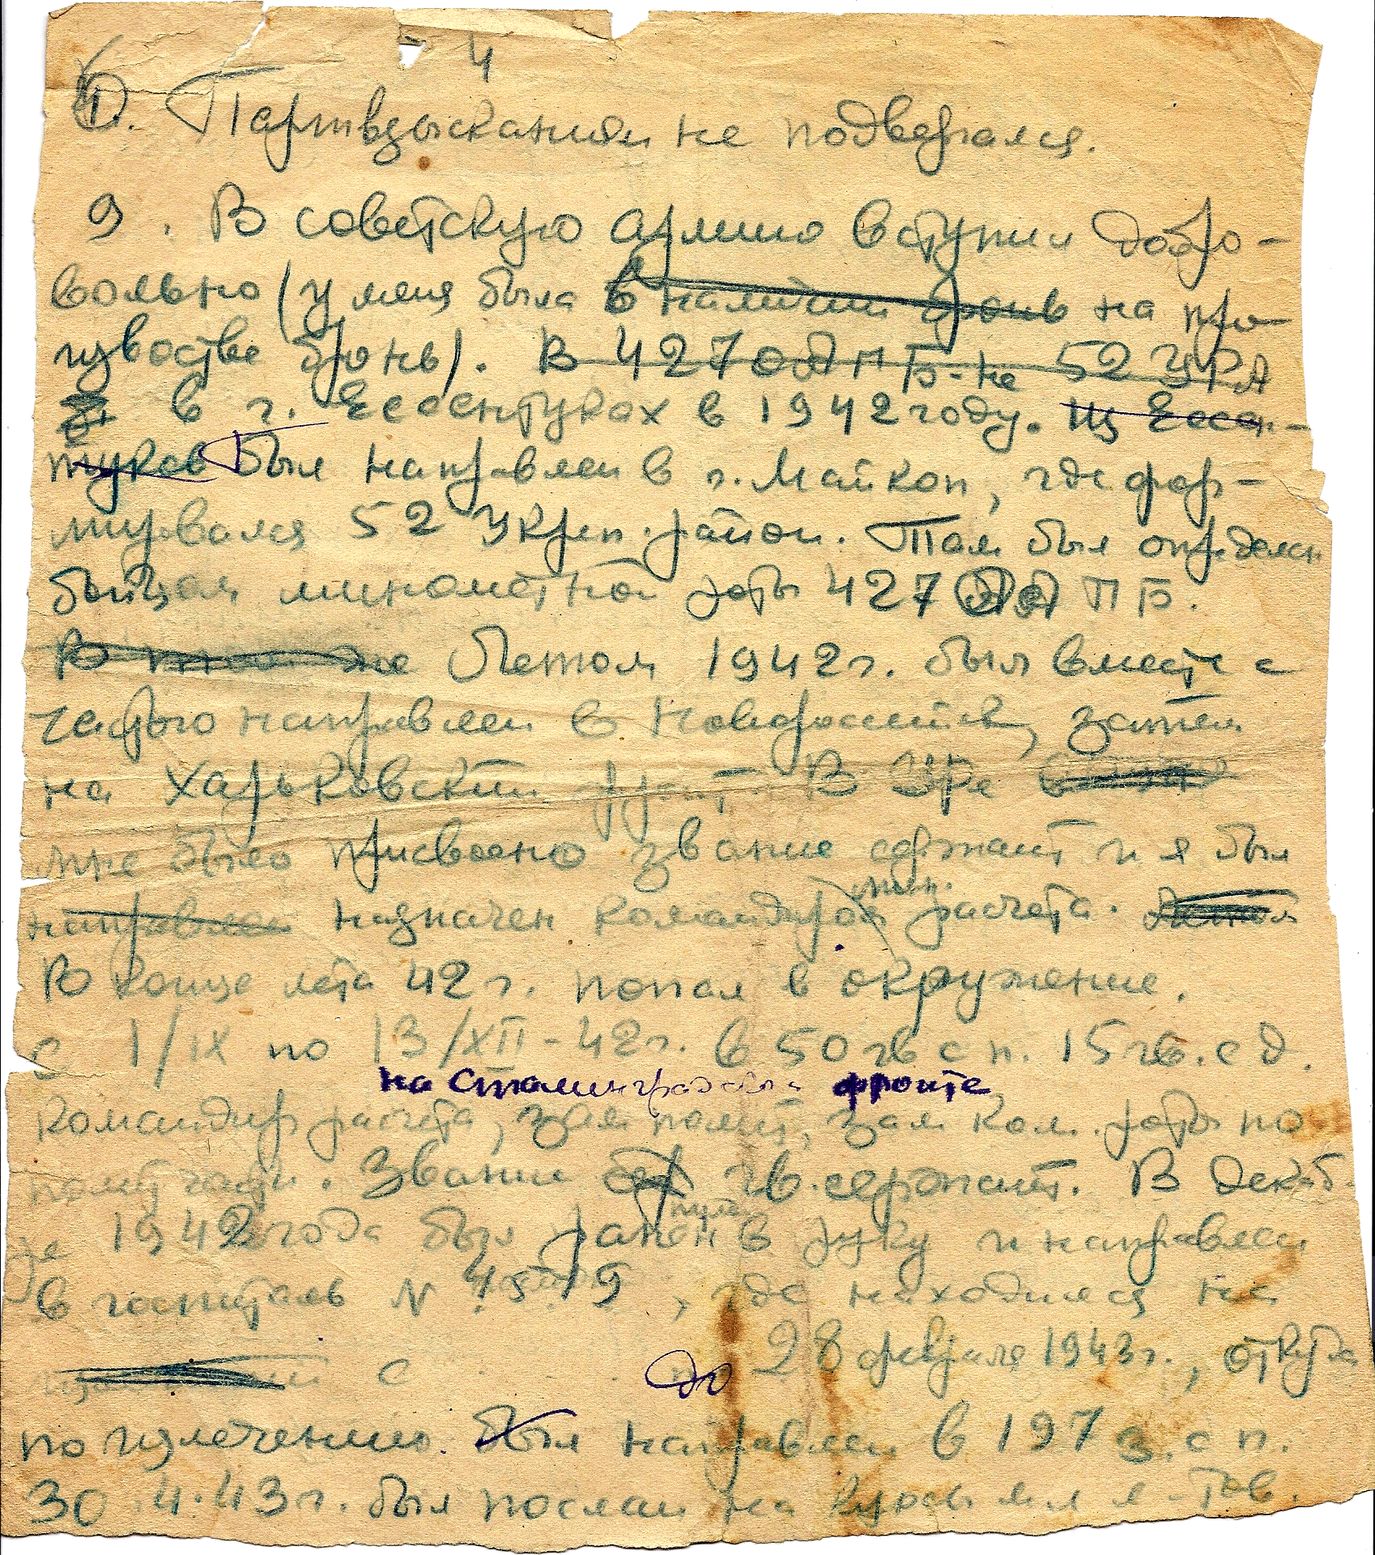 4
Партвзысканиям не подвергался.
9. В советскую армию вступил добро-
вольно (у меня была в наличии бронь на про
изводстве бронь). В 427 ОАПБ-не 52 УРА
в г. Ессентуках в 1942 году. Из Ессен-
туков Был направлен в г. Майкоп, где фор-
мировался 52 Укреп. район. Там был определен
бойцом минометной роты 427 ПБ.
В том же Летом 1942 г. был вместе с
частью направлен в Новороссийск, затем
на Харьковский фронт. В УРе
мне было присвоено звание сержант и я был
направлен назначен командиром мин. расчета.
В конце лета 42 г. попал в окружение.
С 1/IX по 13/XII-42 г. в 50 гв сп. 15 гв. с д.
на Сталинградском фронте
командир расчета, зам полит, зам ком. роты по
полит части. Звание гв. сержант. В декаб-
ре 1942 года был ранен пулей в руку и направлен
в госпиталь N 4519, где находился на
с до 28 февраля 1943 г., откуда
по излечению был направлен в 197 з. с п.
30.4.43 г. был послан на курсы мл л-тов.